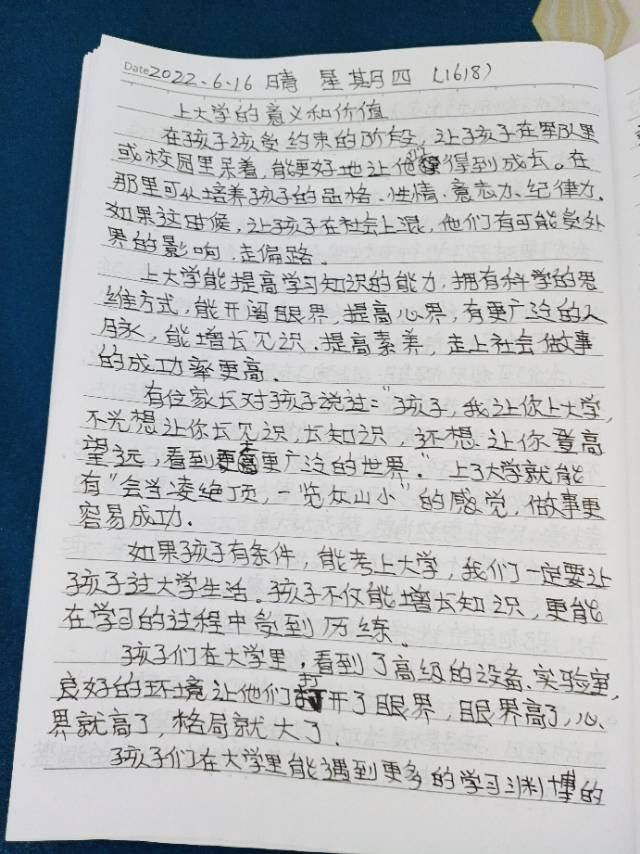 Date 2022.6.16 晴 星期四 (1618)
上大学的意义和价值
在孩子该受约束的阶段,让孩子在军队里
或校园里呆着,能更好地让他们得到成长。在
那里可以培养孩子的品格、性情、意志力、纪律力.
如果这时候,让孩子在社会上混,他们有可能受外
界的影响,走偏路。
上大学能提高学习知识的能力,拥有科学的思
维方式,能开阔眼界,提高心界,有更广泛的人
脉,能增长见识.提高素养,走上社会做事
的成功率更高.
有位家长对孩子说过:"孩子,我让你上大学,
不光想让你长见识,长知识,还想让你登高
望远,看到更高更广泛的世界."上了大学就能
有"会当凌绝顶,一览众山小"的感觉,做事更
容易成功.
如果孩子有条件,能考上大学,我们一定要让
孩子过大学生活。孩子不仅能增长知识,更能
在学习的过程中受到历练。
孩子们在大学里,看到了高级的设备、实验室,
良好的环境让他们打开了眼界,眼界高了,心
界就高了,格局就大了.
孩子们在大学里能遇到更多的学习渊博的